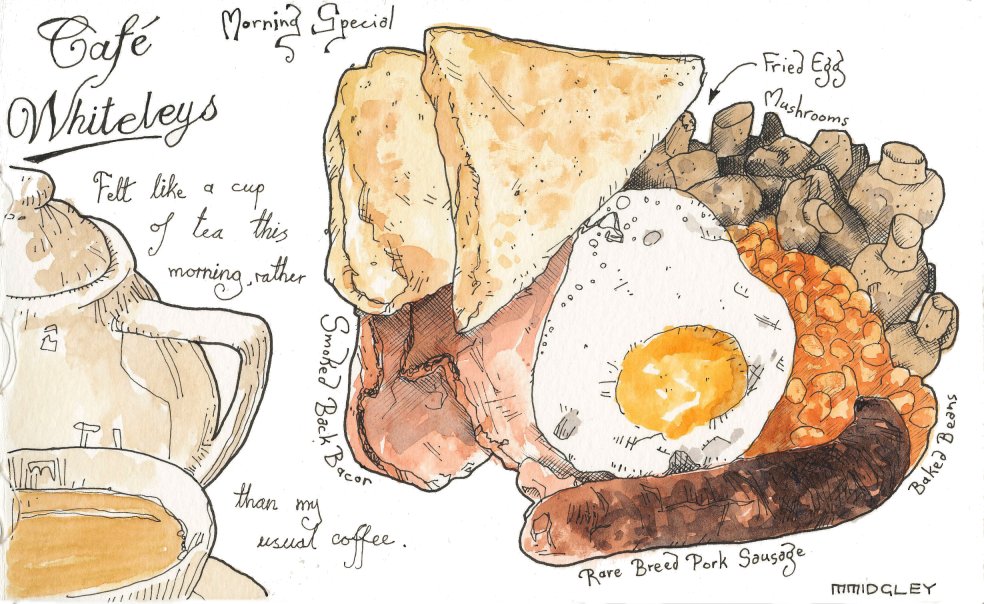 Café
Whiteleys
Morning Special
Fried Egg
Mushrooms
Felt like a cup
of tea this
morning, rather
than my
usual coffee.
Smoked Back Bacon
Baked Beans
Rare Breed Pork Sausage
MMIDGLEY